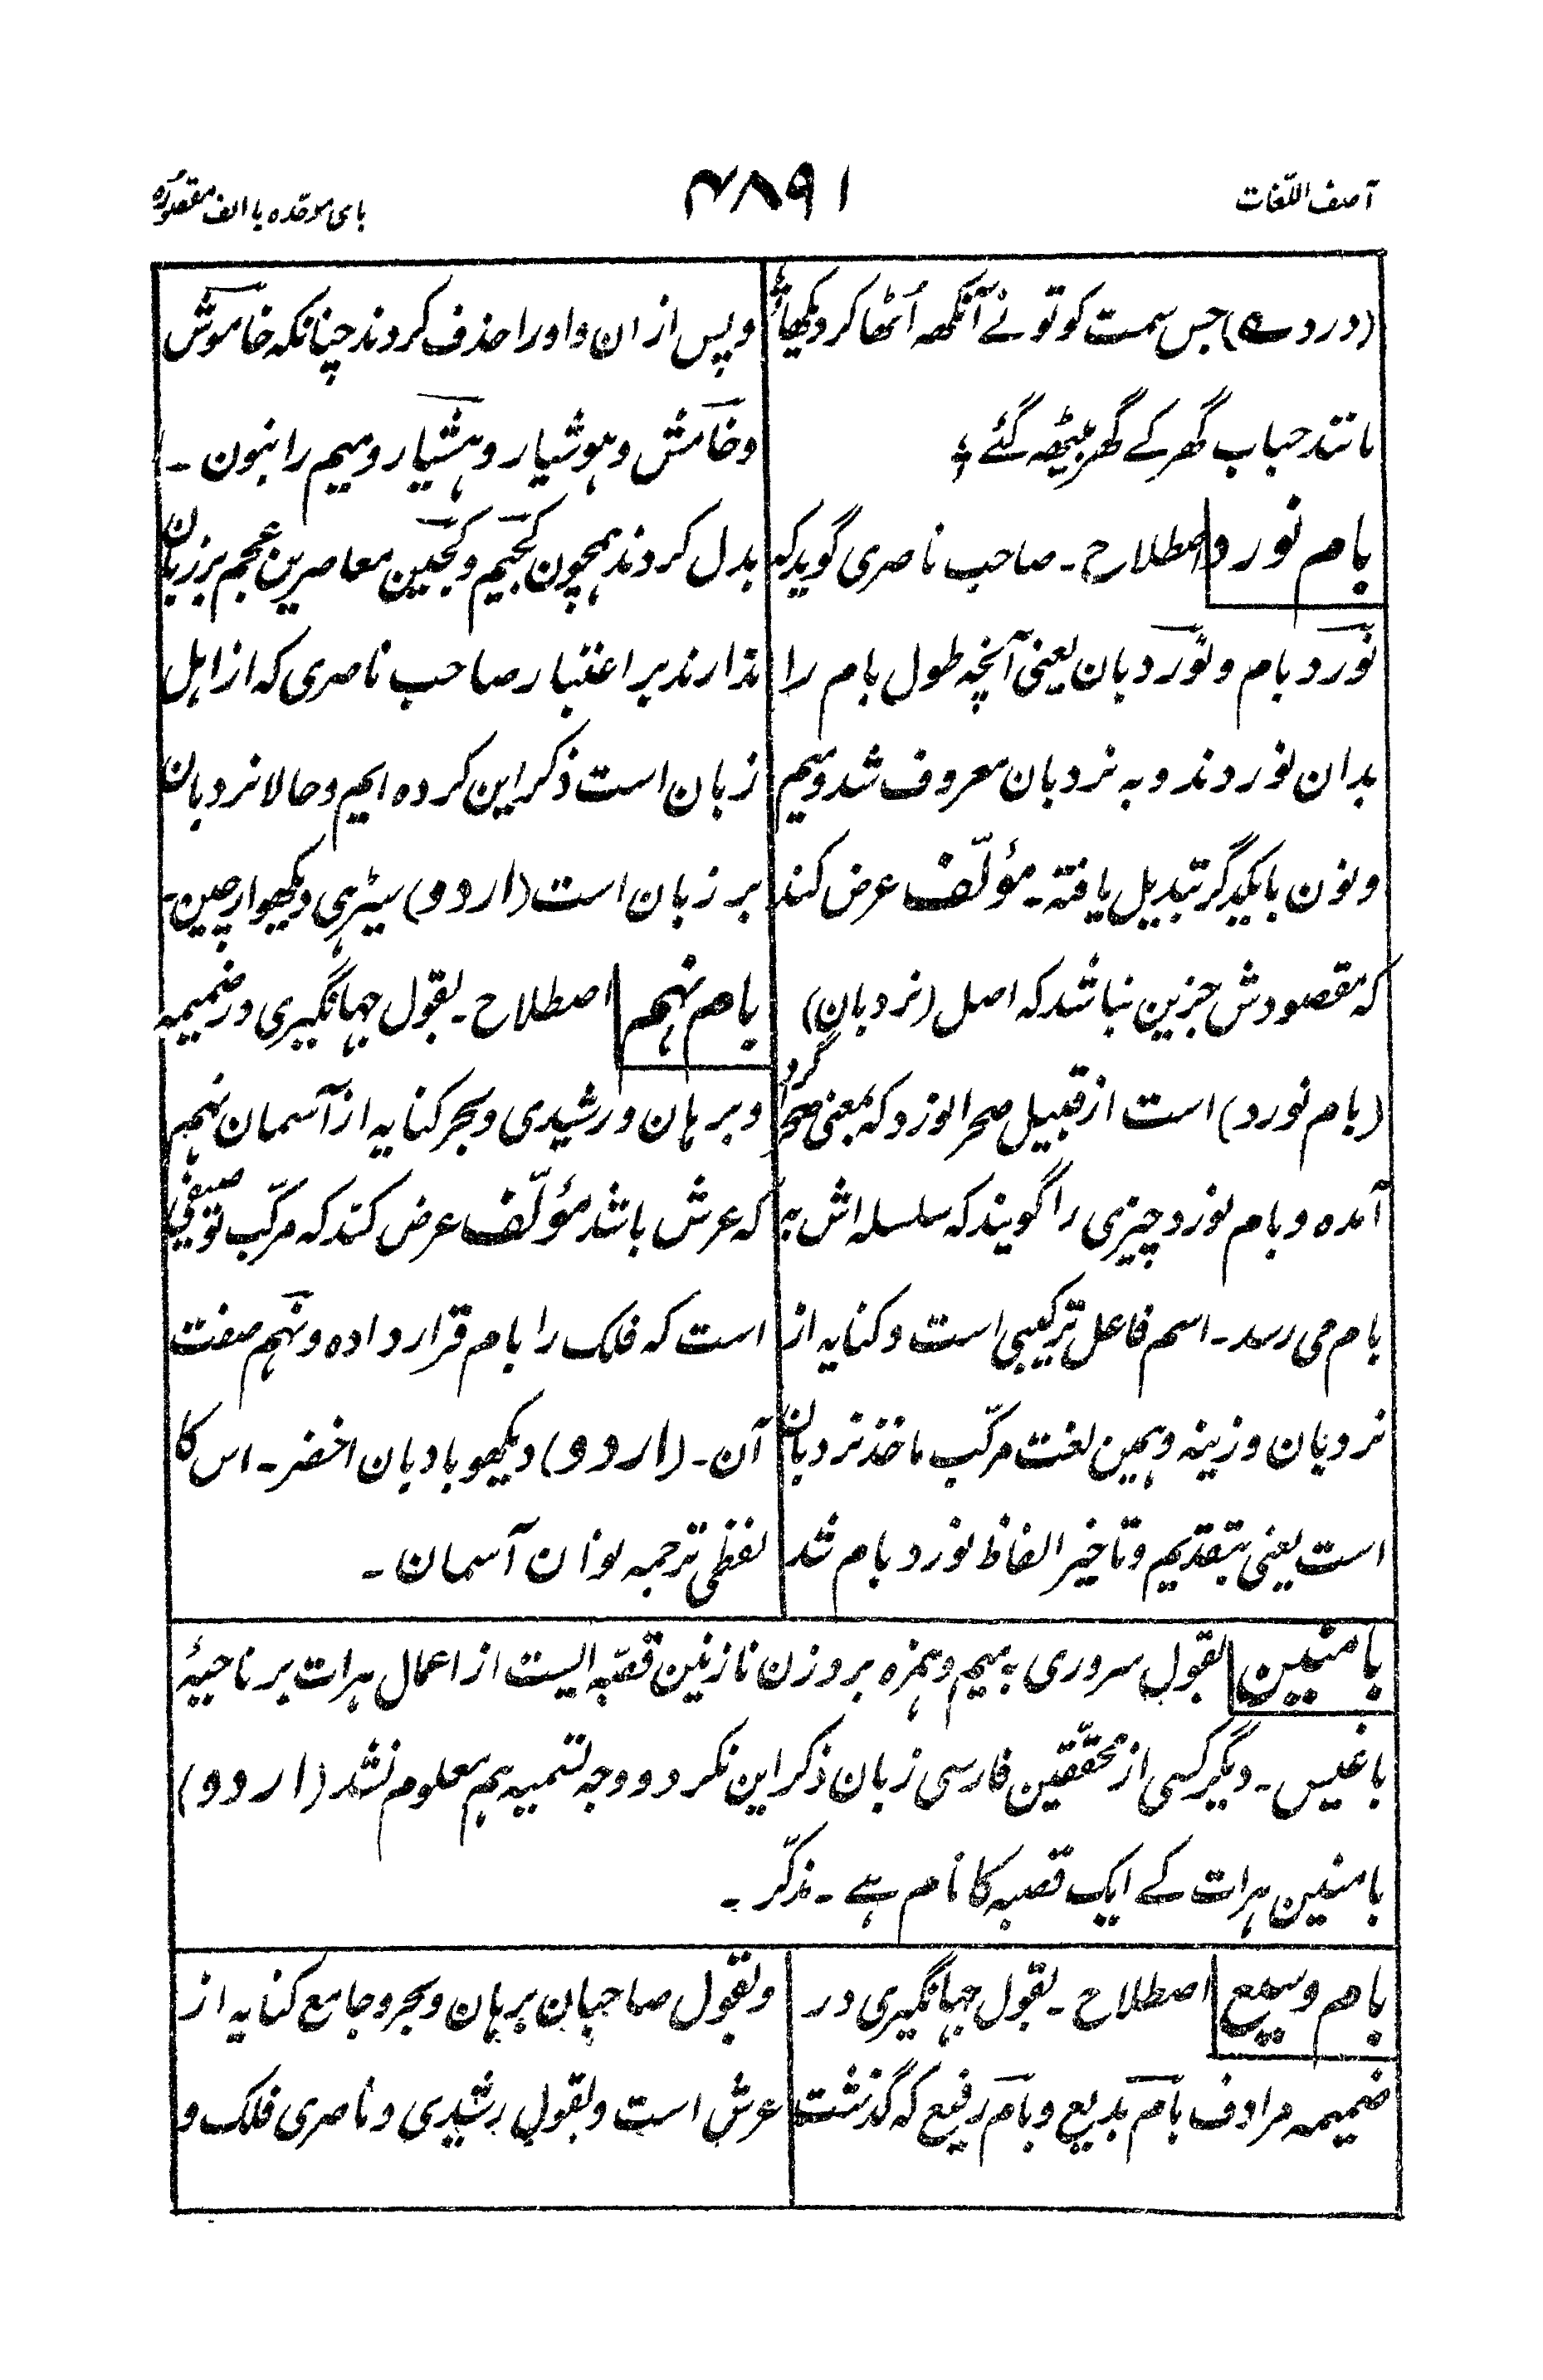 آصف اللّغات
۴۸۹۱
بای موحّده با الف مقصوره
(درد ؎) جس سمت کو تو نے آنکھ اُٹھا کر دیکھا ؛
مانند حباب گھر کے گھر بیٹھ گئے ؛
بام نورد اصطلاح ۔ صاحب ناصری گوید که
نورد بام و نورد بان یعنی آنچه طول بام را
بدان نوردند و به نردبان معروف شد و میم
و نون با یکدگر تبدیل یافته ۔ مؤلّف عرض کند
که مقصودش جزین نباشد که اصل (نردبان)
(بام نورد) است از قبیل صحرا نورد که بمعنی صحرا گرد
آمده و بام نورد چیزی را گویند که سلسله اش به
بام می رسد ۔ اسم فاعل ترکیبی است و کنایه از
نردبان و زینه و همین لغت مرکّب ماخذ نردبان
است یعنی بتقدیم و تاخیر الفاظ نورد بام شد
و پس ازان واو را حذف کردند چنانکه خاموش
و خامش و هوشیار و هشیار و میم را بنون ۔
بدل کردند همچون کجیم و کجین معاصرین عجم بر زبان
ندارند بر اعتبار صاحب ناصری که از اهل
زبان است ذکر این کرده ایم و حالا نردبان
بر زبان است (اردو) سیڑہی دیکھو ارچین ۔
بام نہم اصطلاح ۔ بقول جہانگیری در ضمیمه
و برہان و رشیدی و بحر کنایه از آسمان نہم
که عرش باشد مؤلّف عرض کند که مرکّب توصیفی
است که فلک را بام قرار داده و نہم صفت
آن ۔ (اردو) دیکھو بادبان اخضر ۔ اس کا
لفظی ترجمہ نوان آسمان ۔
بامئین بقول سروری به میم و همزه بر وزن نازنین قصّبه ایست از اعمال هرات بر ناحیۂ
باغیس ۔ دیگر کسی از محقّقین فارسی زبان ذکر این نکرد و وجه تسمیه هم معلوم نشد (اردو)
بامئین ہرات کے ایک قصبہ کا نام ہے ۔ مذکّر ۔
بام وسیع اصطلاح ۔ بقول جہانگیری در
ضمیمه مرادف بام بدیع و بام رفیع که گذشت
و بقول صاحبان برہان و بحر و جامع کنایه از
عرش است و بقول رشیدی و ناصری فلک و